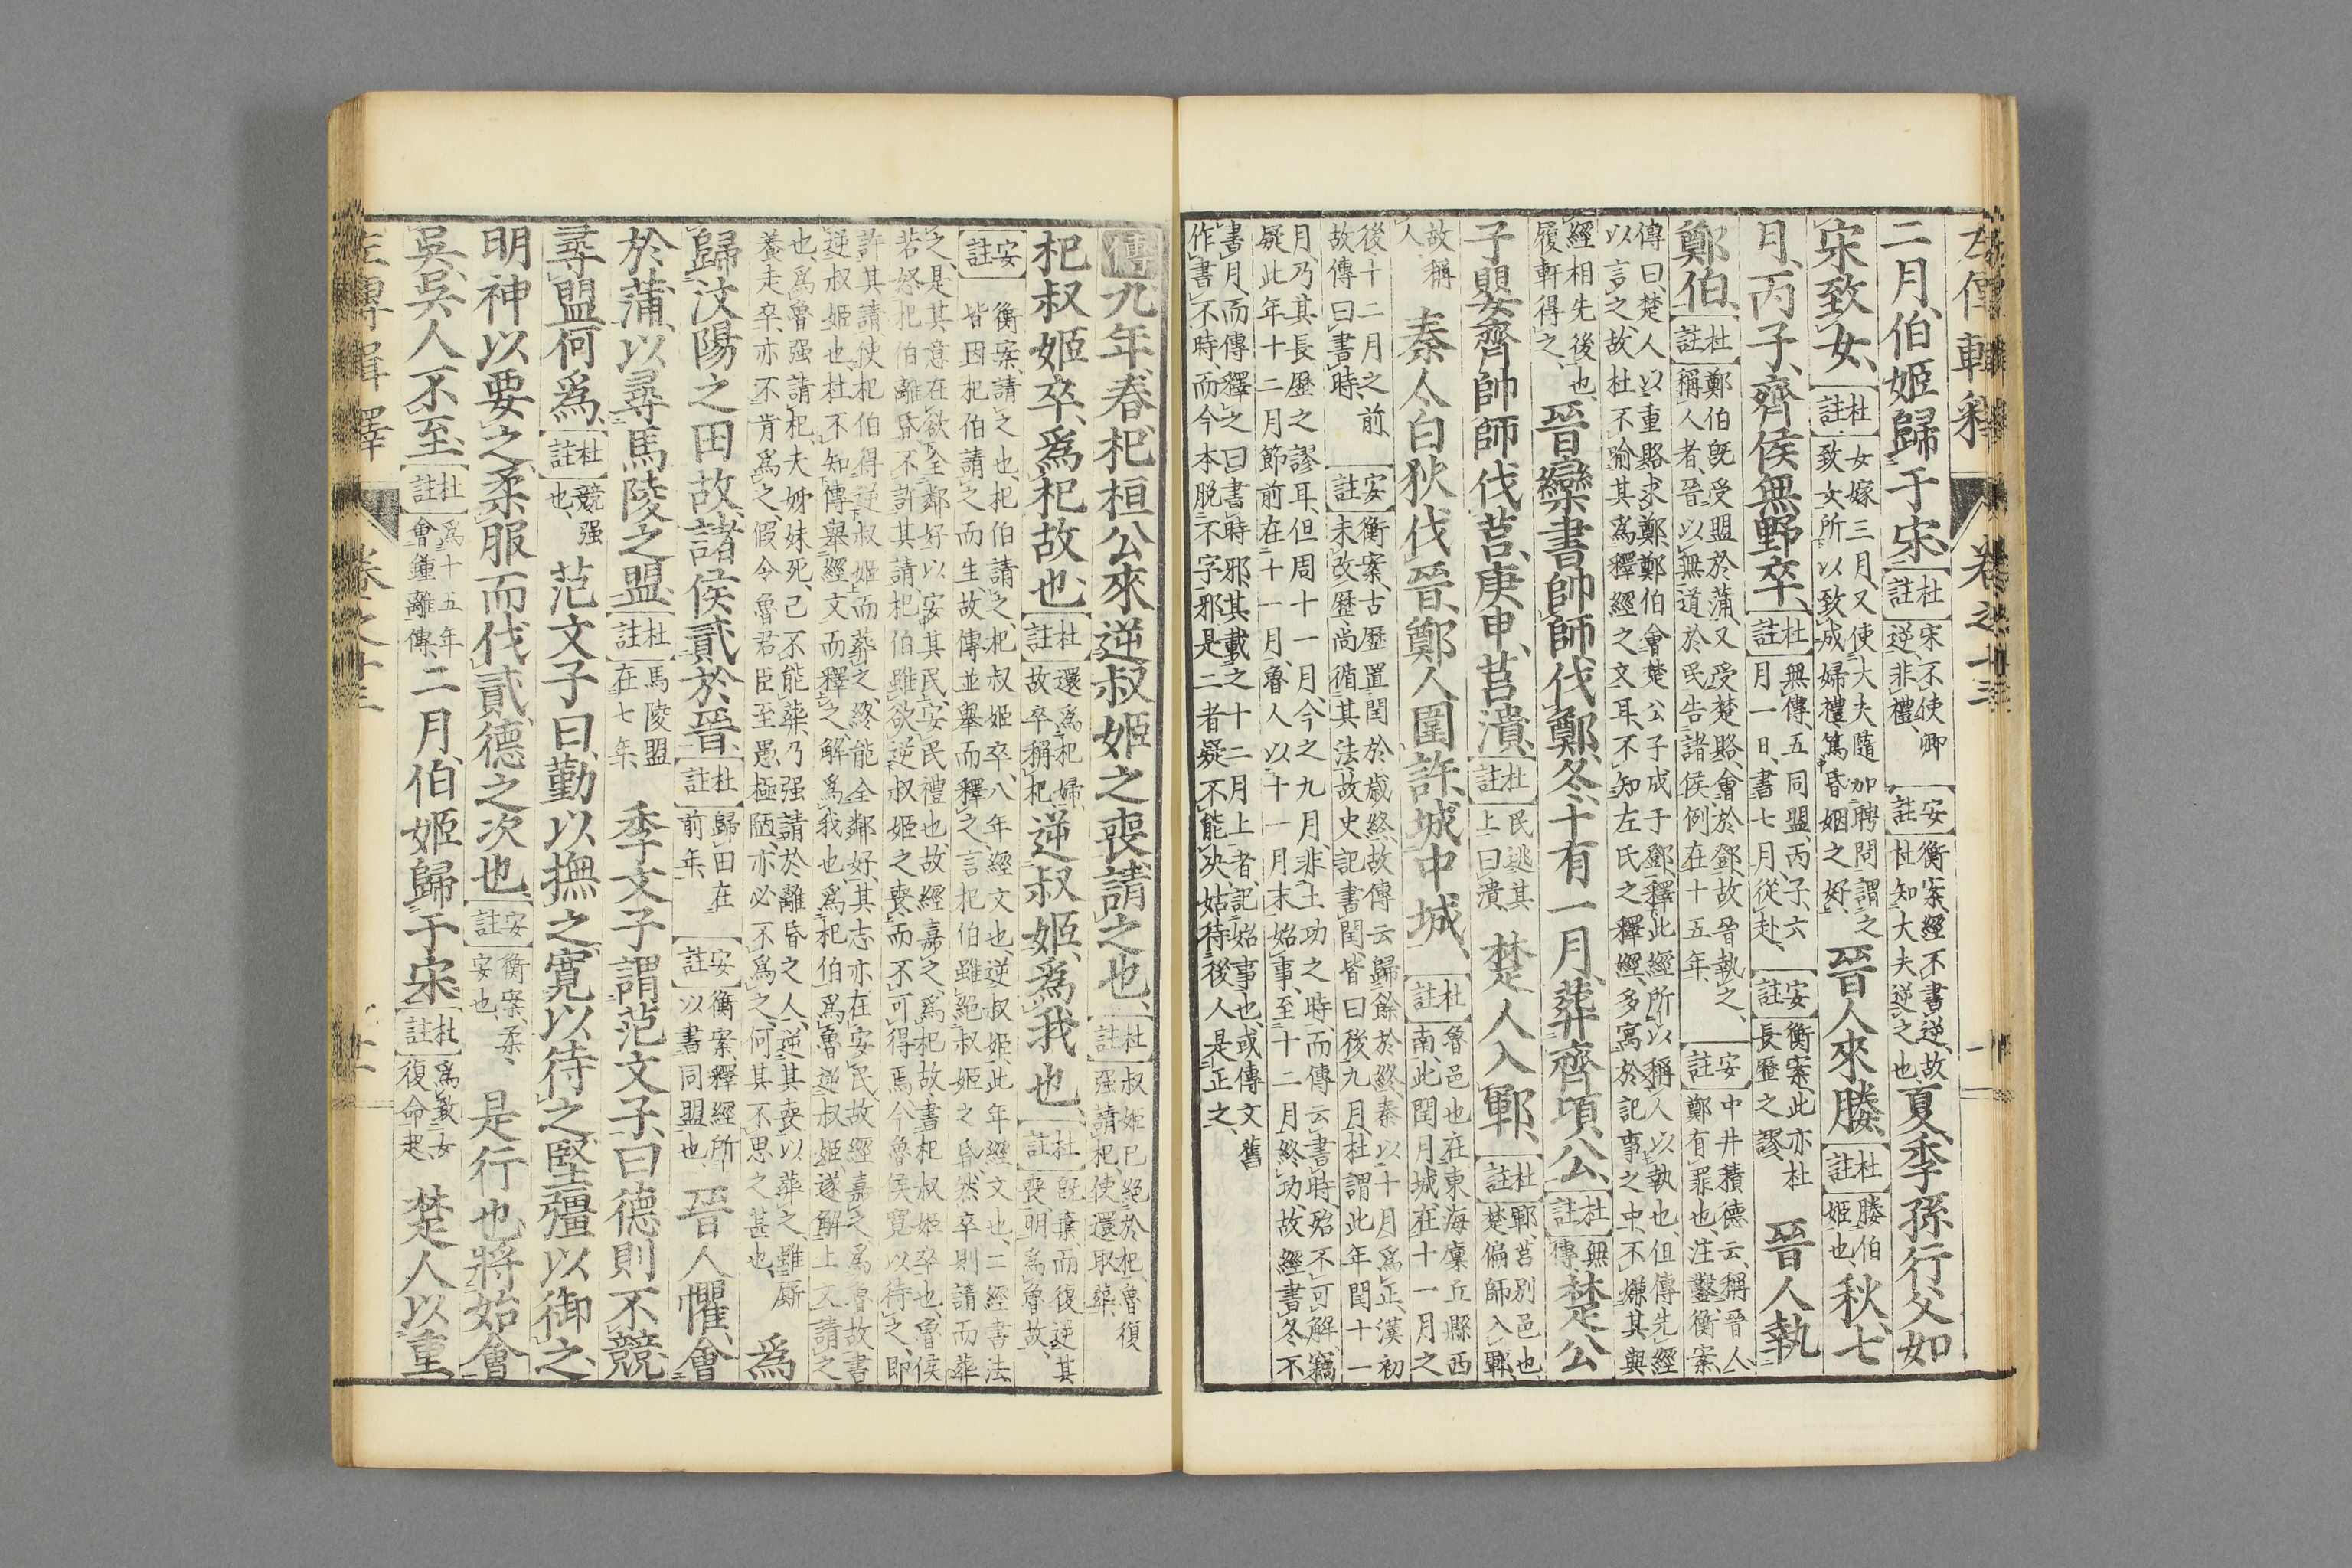 左傳輯釋 卷之十三
二月、伯姬歸于宋、[杜註]宋不使卿逆非禮、[安註]衡案、經不書逆、故杜知大夫逆之也、夏、季孫行父如
宋致女、[杜註]女嫁三月、又使大夫隨加聘問、謂之致女、所以致成婦禮、篤昏姻之好、晉人來媵、[杜註]媵伯姬也、秋、七
月、丙子、齊侯無野卒、[杜註]無傳、五同盟、丙子、六月一日、書七月、從赴、[安註]衡案、此亦杜長歷之謬、晉人執
鄭伯、[杜註]鄭伯既受盟於蒲、又受楚賂、會於鄧、故晉執之、稱人者、晉以無道於民告諸侯、例在十五年、[安註]中井積德云、稱晉人、鄭有罪也、注鑿、衡案、
傳曰、楚人以重賂求鄭、鄭伯會楚公子成于鄧、釋此經所以稱人以執也、但傳先經
以言之、故杜不喻其爲釋經之文耳、不知左氏之釋經、多寓於記事之中、不嫌其與
經相先後也、
履軒得之、晉欒書帥師伐鄭、冬、十有一月、葬齊頃公、[杜註]無傳、楚公
子嬰齊帥師伐莒、庚申、莒潰、[杜註]民逃其上曰潰、楚人入鄆、[杜註]鄆、莒別邑也、楚偏師入鄆、
故稱人、秦人白狄伐晉、鄭人圍許、城中城、[杜註]魯邑也、在東海廩丘縣西南、此閏月城、在十一月之
後、十二月之前、故傳曰、書時、[安註]衡案、古歷置閏於歲終、故傳云歸餘於終、秦以十月爲正、漢初未改歷、尚循其法、故史記書閏、皆曰後九月、杜謂此年閏十一
月、乃其長歷之謬耳、但周十一月、今之九月、非土功之時、而傳云書時、殆不可解、竊
疑此年十二月節前在十一月、魯人以十一月末始事、至十二月終功、故經書冬、不
書月、而傳釋之曰書時邪、其載之十二月上者、記始事也、或傳文舊
作書不時、而今本脱不字邪、是二者疑不能決、姑待後人是正之、
傳九年、春、杞桓公來逆叔姬之喪、請之也、[杜註]叔姬已絕於杞、魯復強請杞、使還取葬、
杞叔姬卒、爲杞故也、[杜註]還爲杞婦、故卒稱杞、逆叔姬、爲我也、[杜註]既棄而復逆其喪、明爲魯故、
[安註]衡案、請之也、杞伯請之、杞叔姬卒、八年經文也、逆叔姬、此年經文也、二經書法、
皆因杞伯請之而生、故傳並舉而釋之、言杞伯雖絕叔姬之昏、然卒則請而葬
之、是其意在欲全鄰好以安其民、安民禮也、故經嘉之、爲杞故、書杞叔姬卒也、魯侯
若怒杞伯離昏、不許其請、杞伯雖欲逆叔姬之喪、而不可得焉、今魯侯寬以待之、即
許其請、使杞伯得逆叔姬而葬之、終能全鄰好、其志亦在安民、故經嘉之、爲魯故、書
逆叔姬也、杜不知傳舉經文而釋之、解爲我也、爲杞伯爲魯逆叔姬、遂解上文請之
也、爲魯强請杞、夫姊妹死、己不能葬、乃强請於離昏之人、逆其喪以葬之、雖厮
養走卒、亦不肯爲之、假令魯君臣至愚極陋、亦必不爲之、何其不思之甚也、爲
歸汶陽之田故、諸侯貳於晉、[杜註]歸田在前年、[安註]衡案、釋經所以書同盟也、晉人懼、會
於蒲、以尋馬陵之盟、[杜註]馬陵盟在七年、季文子謂范文子、曰、德則不競、
尋盟何爲、[杜註]競、强也、范文子曰、勤以撫之、寬以待之、堅彊以御之、
明神以要之、柔服而伐貳、德之次也、[安註]衡案、柔、安也、是行也、將始會
吳、吳人不至、[杜註]爲十五年會鍾離傳、二月、伯姬歸于宋、[杜註]爲致女復命起、楚人以重
左傳輯釋 卷之十三